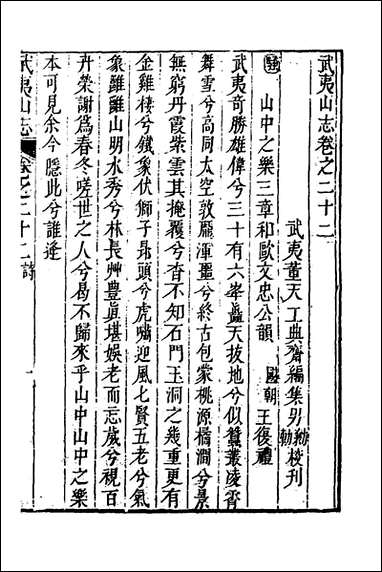 武夷山志卷之二十二
武夷董天工典齋編集男校刊
騷
山中之樂三章和歐文忠公韻 國朝 王復禮
武夷奇勝雄偉兮三十有六峯矗天拔地兮似蠶叢陵霄
舞雪兮高同太空敦龎渾噩兮終古包蒙桃源橘澗兮景
無窮丹霞紫雲其掩覆兮杳不知石門玉洞之幾重更有
金雞棲兮鐵象伏獅子昂頭兮虎嘯迎風七賢五老兮氣
象雝雝山明水秀兮林長艸豊眞堪娛老而忘歲兮視百
卉榮謝爲春冬嗟世之人兮曷不歸來乎山中山中之樂
本可見余今隱此兮誰逢
武夷山志
卷之二十二 詩
一